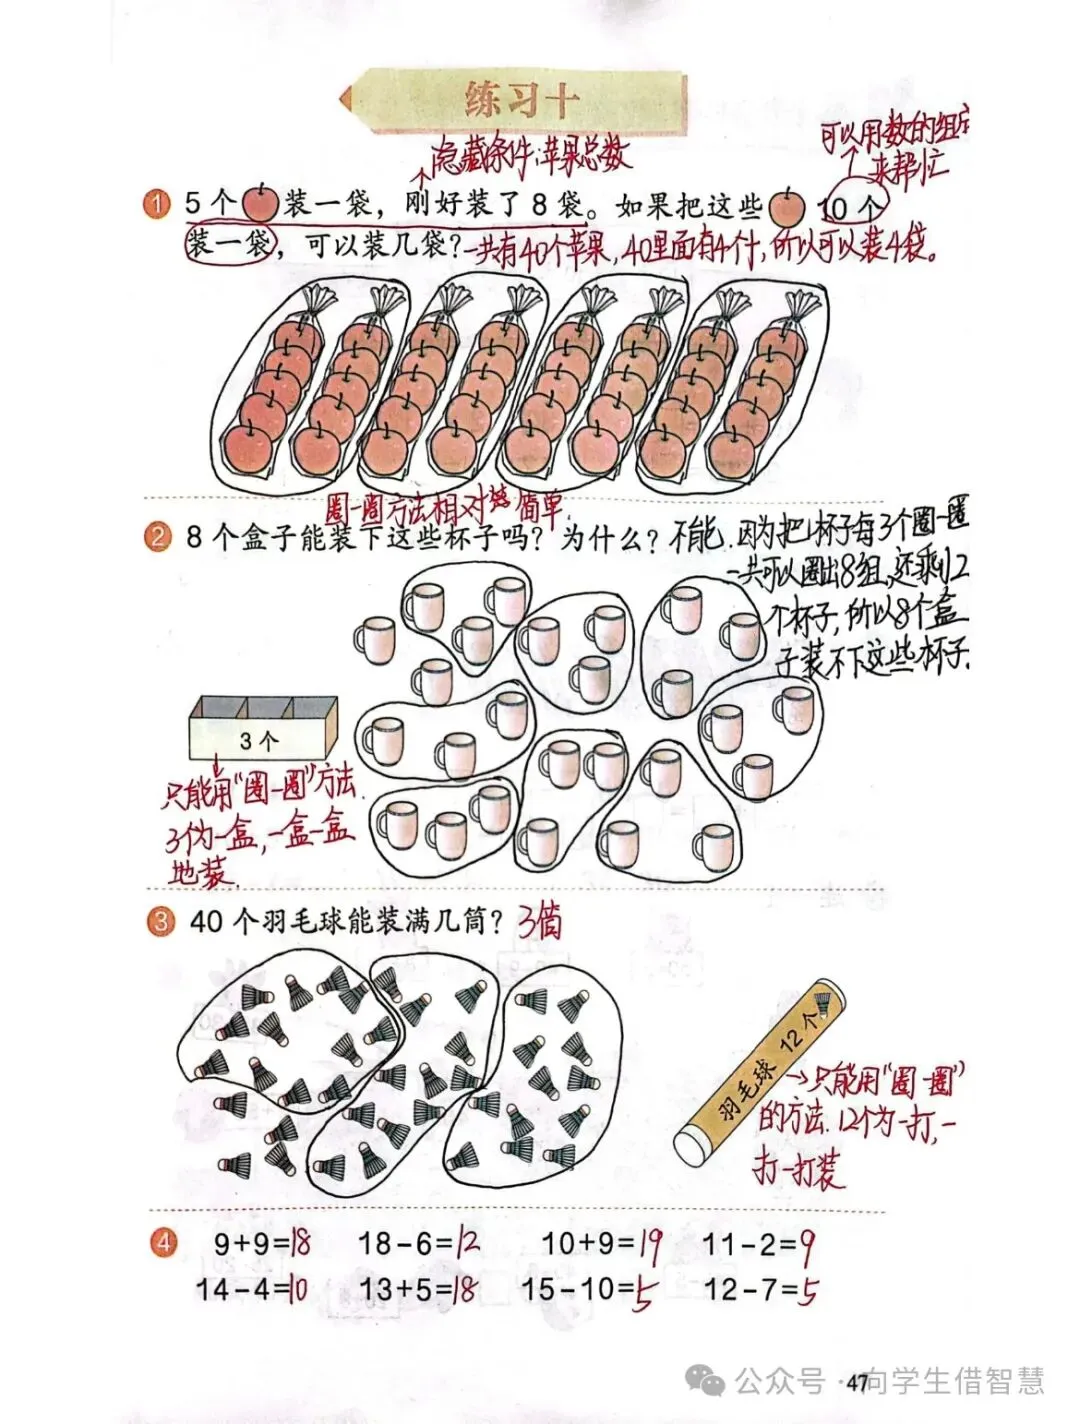 练习十
隐藏条件:苹果总数
可以用数的组成
来帮忙
1 5个 装一袋，刚好装了8袋。如果把这些 10个
装一袋，可以装几袋？一共有40个苹果，40里面有4个十，所以可以装4袋。
圈一圈方法相对 简单.
2 8个盒子能装下这些杯子吗？为什么？不能.因为把杯子每3个圈一圈
一共可以圈出8组,还剩2
个杯子,所以8个盒
子装不下这些杯子.
3个
只能用“圈一圈”方法.
3个为一盒,一盒一盒
地装.
3 40个羽毛球能装满几筒？3筒
羽毛球 12个
只能用“圈一圈”
的方法.12个为一打,一
打一打装
4 9+9=18 18-6=12 10+9=19 11-2=9
14-4=10 13+5=18 15-10=5 12-7=5
47
公众号·向学生借智慧